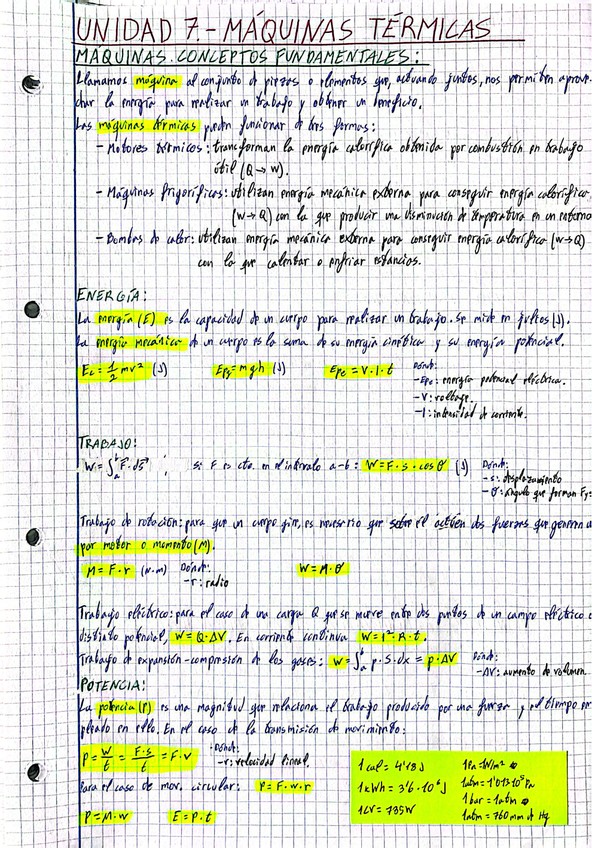 UNIDAD 7.- MÁQUINAS TÉRMICAS
MÁQUINAS. CONCEPTOS FUNDAMENTALES:
Llamamos máquina al conjunto de piezas o elementos que, actuando juntos, nos permiten aprove-
char la energía para realizar un trabajo y obtener un beneficio.
Las máquinas térmicas pueden funcionar de tres formas:
- Motores térmicos: transforman la energía calorífica obtenida por combustión en trabajo
útil (Q → W).
- Máquinas frigoríficas: utilizan energía mecánica externa para conseguir energía calorífica
(W → Q) con la que producir una disminución de temperatura en un entorno
- Bombas de calor: utilizan energía mecánica externa para conseguir energía calorífica (W → Q)
con la que calentar o enfriar estancias.
ENERGÍA:
La energía (E) es la capacidad de un cuerpo para realizar un trabajo. Se mide en julios (J).
La energía mecánica de un cuerpo es la suma de su energía cinética y su energía potencial.
Ec = 1/2 mv² (J) Epg = mgh (J) Epe = V·I·t Donde:
- Epe: energía potencial eléctrica.
- V: voltage.
- I: intensidad de corriente.
TRABAJO:
W = ∫ₐᵇ F·ds ; si F es cte. en el intervalo a-b: W = F·s·cos θ (J) Donde:
- s: desplazamiento
- θ: ángulo que forman F y
Trabajo de rotación: para que un cuerpo gire, es necesario que sobre él actúen dos fuerzas que generen u
par motor o momento (M).
M = F·r (N·m) Donde: W = M·θ
- r: radio
Trabajo eléctrico: para el caso de una carga Q que se mueve entre dos puntos de un campo eléctrico
distinto potencial, W = Q·ΔV. En corriente continua W = I²·R·t.
Trabajo de expansión-compresión de los gases: W = ∫ₐᵇ p·S·dx = p·ΔV Donde:
- ΔV: aumento de volumen.
POTENCIA:
La potencia (P) es una magnitud que relaciona el trabajo producido por una fuerza y el tiempo em
pleado en ello. En el caso de la transmisión de movimiento:
P = W/t = F·s/t = F·v Donde:
- v: velocidad lineal.
Para el caso de mov. circular: P = F·w·r
P = M·w E = P·t
1 cal = 4'18 J 1 Pa = 1N/m²
1 kWh = 3'6·10⁶ J 1atm = 1'013·10⁵ Pa
1 CV = 735W 1 bar = 1atm
1atm = 760 mm de Hg